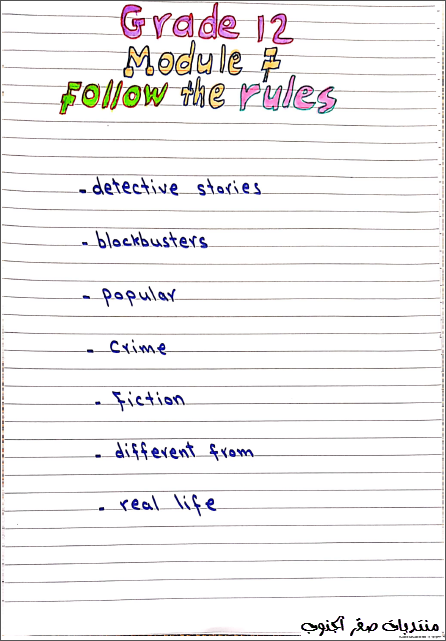 Grade 12
Module 7
Follow the rules
- detective stories
- blockbusters
- popular
- crime
- fiction
- different from
- real life
منتديات صقر الجنوب